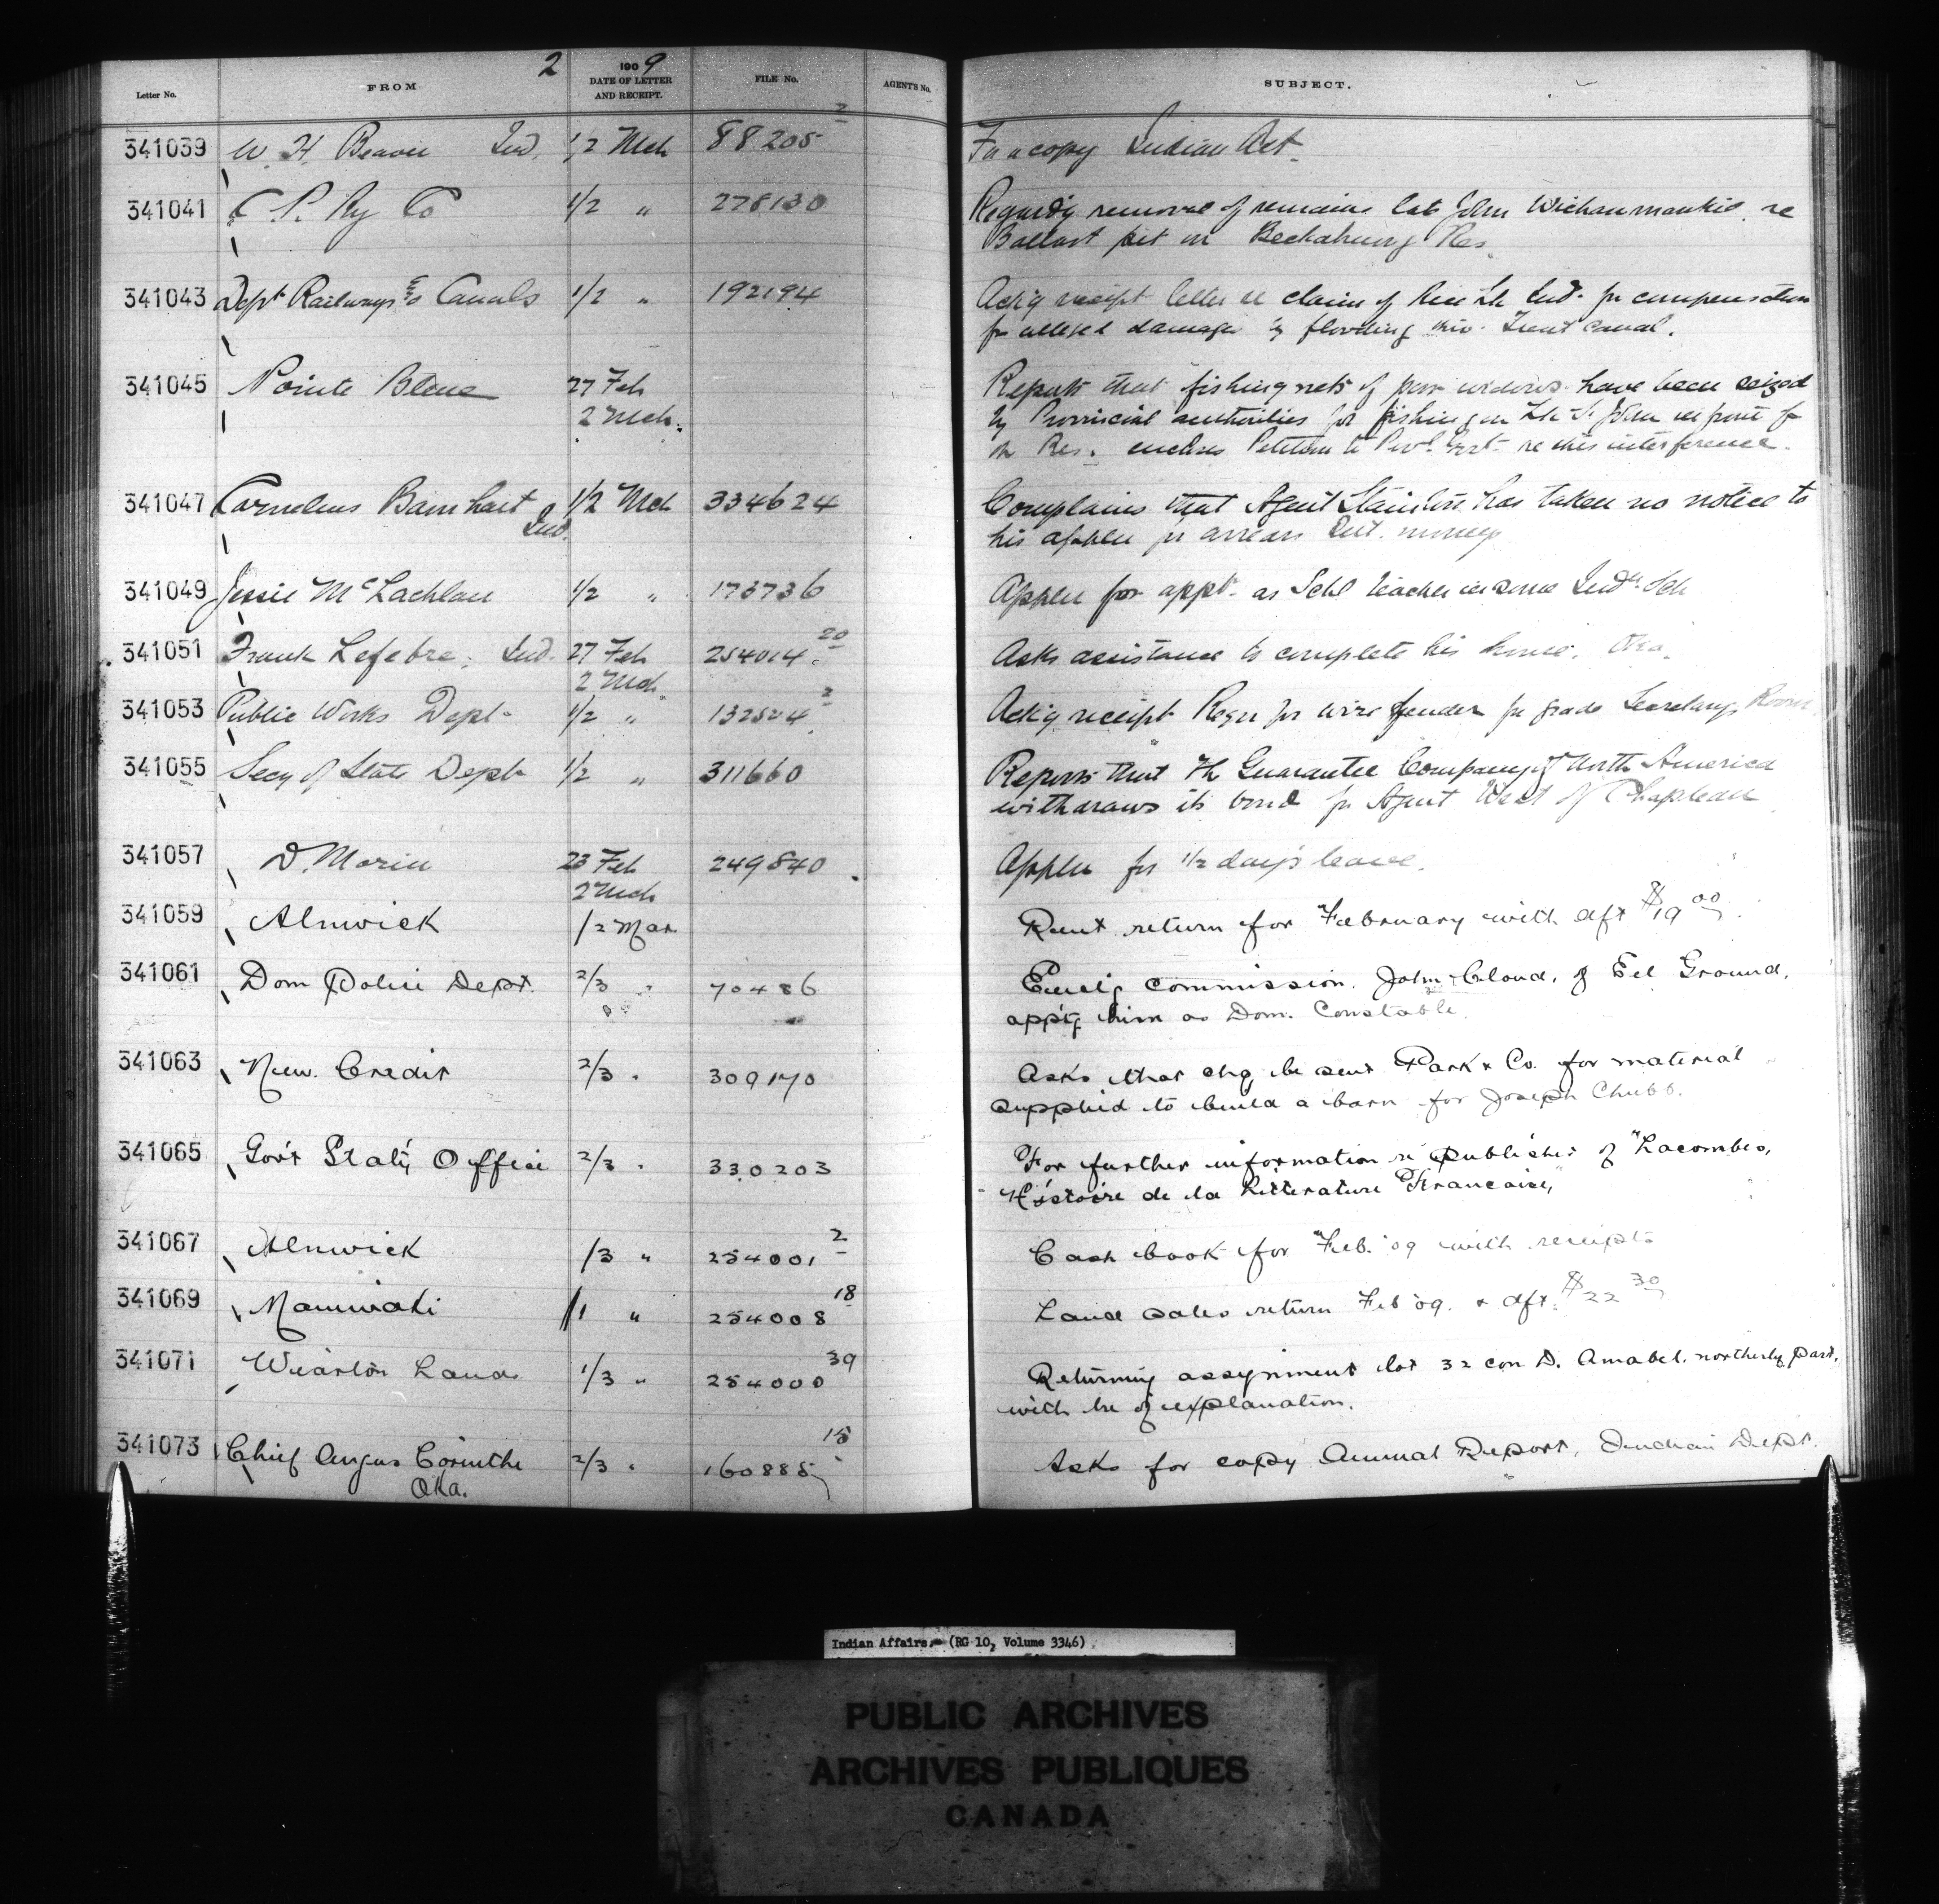 2
1909
Letter No. FROM DATE OF LETTER AND RECEIPT. FILE No. AGENT'S No. SUBJECT.
341039 W. H. Beaver Ind. 1/2 Mch 88205 2 For a copy Indian Act.
341041 C. P. Ry Co 1/2 " 278130 Regard'g removal of remains late John re
Ballast pit on Res.
341043 Dept Railways & Canals 1/2 " 192194 Ack'g receipt letter re claim of Rice Lk Ind. for compensation
for alleged damage by flooding Trent Canal.
341045 Pointe Bleue 27 Feb Reports that fishing nets of poor widows have been seized
2 Mch. by Provincial authorities for fishing in Lk St John in front of
the Res. encloses Petition to Provl Govt re this interference.
341047 Cornelius Barnhart 1/2 Mch 334624 Complains that Agent has taken no notice to
Ind. his applcn for arrears Int. money
341049 Jessie McLachlan 1/2 " 173736 Applcn for appt. as Schl teacher in some Indn Sch
341051 Frank Lefebre, Ind. 27 Feb 254014 20 Asks assistance to complete his house. Oka.
2 Mch.
341053 Public Works Dept. 1/2 " 132524 2 Ack'g receipt Reqn for wire fender for grate Secretary's Room
341055 Secy of State Dept 1/2 " 311660 Reports that The Guarantee Company of North America
withdraws its bond for Agent West of Chapleau
341057 D. Morin 23 Feb 249840 Applcn for 1/2 day's leave.
2 Mch
341059 Alnwick 1/2 Mar Rent return for February with dft $19 00
341061 Dom Police Dept. 2/3 " 70486 Encl'g commission. John Cloud, of Eel Ground,
app't'g him as Dom. Constable.
341063 New Credit 2/3 " 309170 Asks that chq be sent Park & Co. for material
supplied to build a barn for Joseph Chubb.
341065 Gov't Stat'y Office 2/3 " 330203 For further information re publisher of "Lacombes,
Histoire de la Litterature Francaise,"
341067 Alnwick 1/3 " 254001 2 Cash book for Feb. '09 with receipts
341069 Maniwaki 1/1 " 254008 18 Land sales return Feb '09. & dft. $22 30
341071 Wiarton Lands 1/3 " 254000 39 Returning assignment lot 32 con D. Amabel. northerly part,
with lre of explanation.
341073 Chief Angus Corinthe 2/3 " 160885 15 Asks for copy Annual Report, Indian Dept.
Oka.
Indian Affairs. (RG 10, Volume 3346)
PUBLIC ARCHIVES
ARCHIVES PUBLIQUES
CANADA